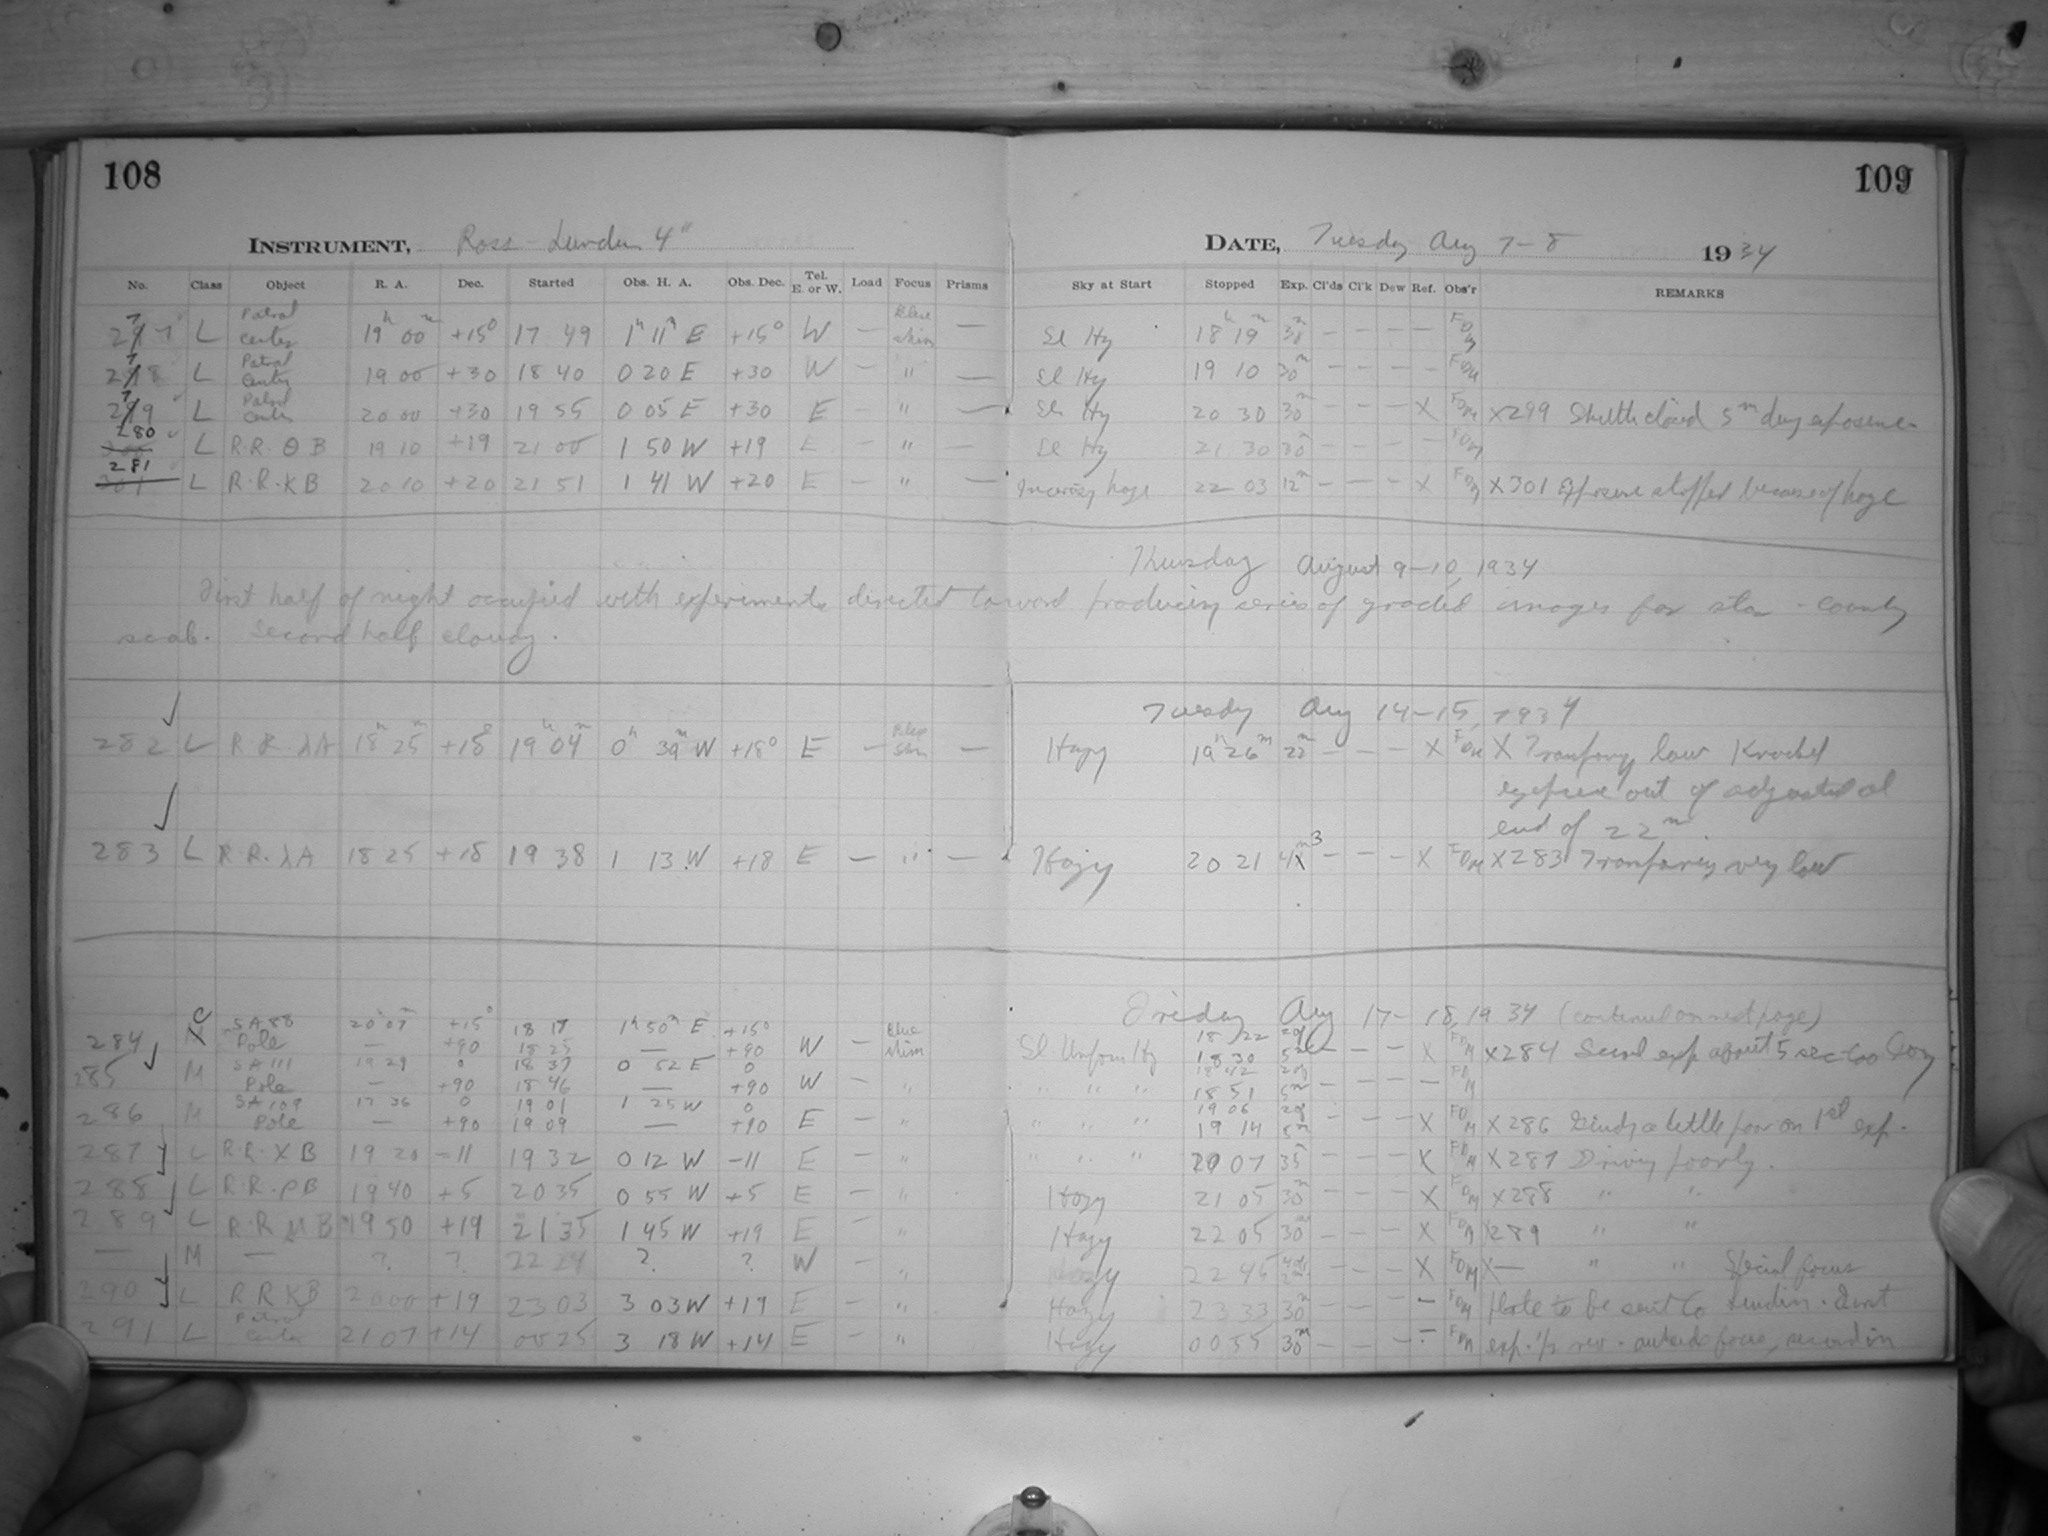 108
109
INSTRUMENT, Ross-Lundin 4"
DATE, Tuesday Aug 7-8 1934
No. Class Object R. A. Dec. Started Obs. H. A. Obs. Dec. Tel. E. or W. Load Focus Prisms Sky at Start Stopped Exp. Cl'ds Cl'k Dew Ref. Obs'r REMARKS
277 L Patrol Center 19h 00m +15° 17 49 1h 11m E +15° W — Blue skim — Sl Hy 18h 19m 30m — — — — FOM
278 L Patrol Center 19 00 +30 18 40 0 20 E +30 W — " — Sl Hy 19 10 30m — — — — FOM
279 L Patrol Center 20 00 +30 19 55 0 05 E +30 E — " — Sl Hy 20 30 30m — — — X FOM X299 Shutter closed 5m during exposure
280 L R.R. θ B 19 10 +19 21 00 1 50 W +19 E — " — Sl Hy 21 30 30m — — — — FOM
281 L R.R. K B 20 10 +20 21 51 1 41 W +20 E — " — Increasing haze 22 03 12m — — — X FOM X301 Exposure stopped because of haze
Thursday August 9-10, 1934
First half of night occupied with experiments directed toward producing series of graded images for star-county
scale. Second half cloudy.
Tuesday Aug 14-15, 1934
282 L R R. λA 18h 25m +18° 19h 04m 0h 39m W +18° E — Blue Skm — Hazy 19h 26m 22m — — — X FOM X Transparency low
exposure out of adjusted at
end of 22m.
283 L R R. λA 18 25 +18 19 38 1 13 W +18 E — " — Hazy 20 21 43m — — — X FOM X283 Transparency very low
Friday Aug 17-18, 1934 (continued on next page)
284 C SA 88 20 07m +15° 18 17 1h 50m E +15° 18 22
Pole — +90 18 25 — +90 W — Blue skim Sl. Uniform Hy 18 30 5m — — — X FOM X284 Second exp about 5 sec too long
285 M SA 111 19 29 0 18 37 0 52 E 0 18 42
Pole — +90 18 46 — +90 W — " " " " 18 51 5m — — — — FOM
286 M SA 109 17 36 0 19 01 1 25 W 0 19 06
Pole — +90 19 09 — +90 E — " " " " 19 14 5m — — — X FOM X286 Guiding a little poor on 1st exp.
287 L R.R. X B 19 20 -11 19 32 0 12 W -11 E — " " " " 20 07 35m — — — X FOM X287 Driving poorly.
288 L R R. ρB 19 40 +5 20 35 0 55 W +5 E — " Hazy 21 05 30m — — — X FOM X288 " "
289 L R.R M B 19 50 +19 21 35 1 45 W +19 E — " Hazy 22 05 30m — — — X FOM X289 " "
— M — ? ? 22 24 ? ? W " Hazy 22 45 — — — X FOM X— " " Special focus
290 L R R K B 20 00 +19 23 03 3 03 W +19 E — " Hazy 23 33 30m — — — — FOM plate to be sent to Lundin. First
291 L Patrol Center 21 07 +14 00 25 3 18 W +14 E — " Hazy 00 55 30m — — — — FOM exp. ½ rev. outside focus, second in